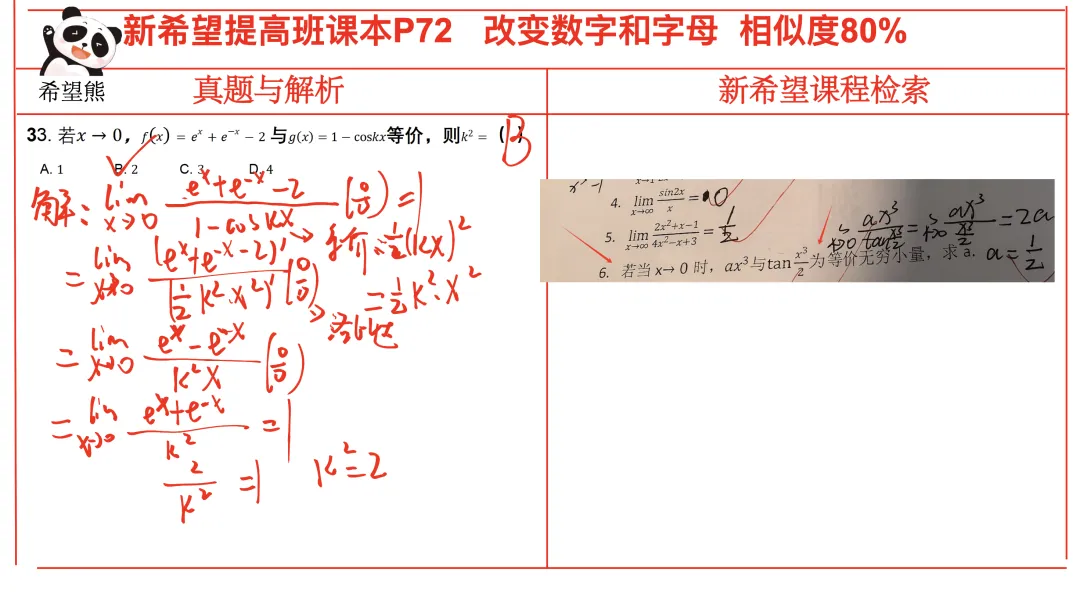 新希望提高班课本P72 改变数字和字母 相似度80%
希望熊
真题与解析
新希望课程检索
33. 若x → 0，f(x) = e^x + e^{-x} − 2 与g(x) = 1 − coskx等价，则k² = （ B ）
A. 1 B. 2 C. 3 D. 4
解：lim x→0 (e^x+e^{-x}-2)/(1-cos kx) (0/0) = 1
= lim x→0 (e^x+e^{-x}-2)'/(½k²·x²)' (0/0)
等价：½(kx)²
= ½k²·x²
洛必达
= lim x→0 (e^x-e^{-x})/(k²x) (0/0)
= lim x→0 (e^x+e^{-x})/k² = 1
2/k² = 1 k²=2
4. lim x→∞ sin2x/x = 0
5. lim x→∞ (2x²+x−1)/(4x²−x+3) = 1/2
6. 若当 x→ 0 时，ax³与tan x³/2 为等价无穷小量，求 a.
ax³/tan x³/2 = ax³/(x³/2) = 2a
a = 1/2